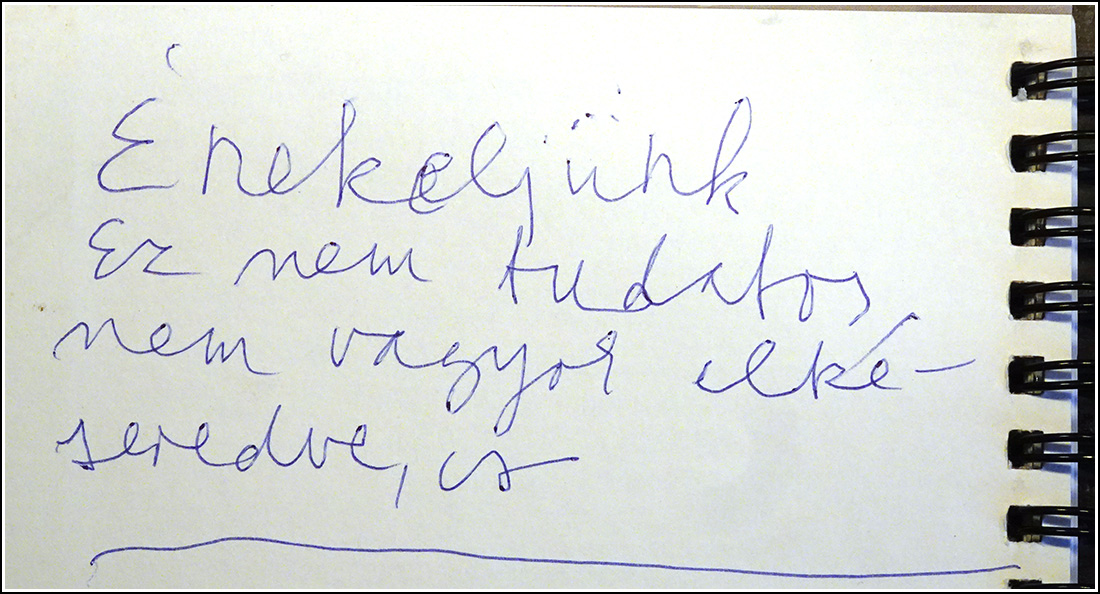 Énekeljünk
Ez nem tudatos
nem vagyok elké-
seredve, ez